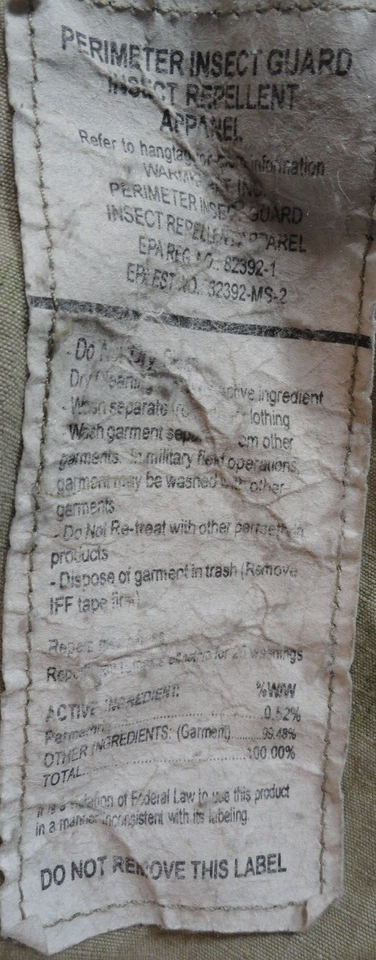 PERIMETER INSECT GUARD
INSECT REPELLENT
APPAREL
Refer to hangtag for information
PERIMETER INSECT GUARD
INSECT REPELLENT APPAREL
EPA REG NO.: 82392-1
EPA EST NO. 82392-MS-2
- Do Not Dry Clean
Dry Cleaning active ingredient
- Wash separate from clothing
Wash garment separate from other
garments. In military field operations,
garment may be washed with other
garments
- Do Not Re-treat with other permethrin
products
- Dispose of garment in trash (Remove
IFF tape first)
Repels
for 25 washings
ACTIVE INGREDIENT: %W/W
Permethrin 0.52%
OTHER INGREDIENTS: (Garment) 99.48%
TOTAL 100.00%
It is a violation of Federal Law to use this product
in a manner inconsistent with its labeling.
DO NOT REMOVE THIS LABEL